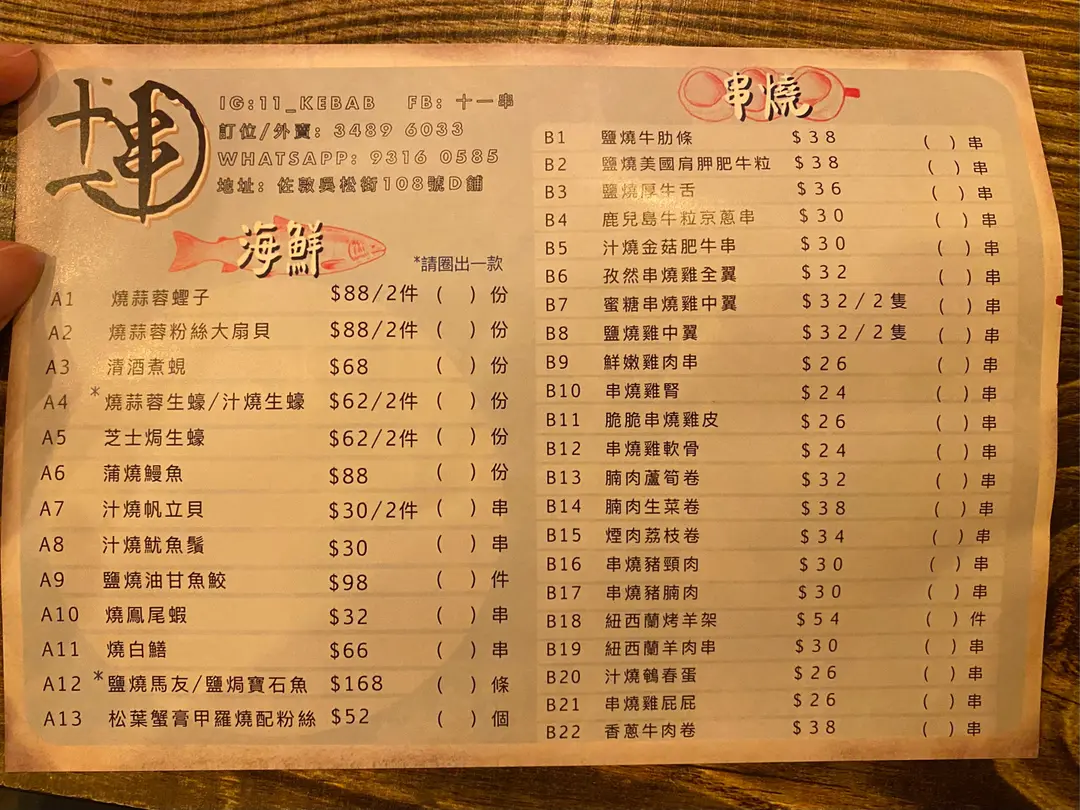 十一串
IG:11_KEBAB FB: 十一串
訂位/外賣: 3489 6033
WHATSAPP: 9316 0585
地址: 佐敦吳松街108號D舖
海鮮
*請圈出一款
A1 燒蒜蓉蟶子 $88/2件 ( ) 份
A2 燒蒜蓉粉絲大扇貝 $88/2件 ( ) 份
A3 清酒煮蜆 $68 ( ) 份
A4 *燒蒜蓉生蠔/汁燒生蠔 $62/2件 ( ) 份
A5 芝士焗生蠔 $62/2件 ( ) 份
A6 蒲燒鰻魚 $88 ( ) 份
A7 汁燒帆立貝 $30/2件 ( ) 串
A8 汁燒魷魚鬚 $30 ( ) 串
A9 鹽燒油甘魚鮫 $98 ( ) 件
A10 燒鳳尾蝦 $32 ( ) 串
A11 燒白鱔 $66 ( ) 串
A12 *鹽燒馬友/鹽焗寶石魚 $168 ( ) 條
A13 松葉蟹膏甲羅燒配粉絲 $52 ( ) 個
串燒
B1 鹽燒牛肋條 $38 ( ) 串
B2 鹽燒美國肩胛肥牛粒 $38 ( ) 串
B3 鹽燒厚牛舌 $36 ( ) 串
B4 鹿兒島牛粒京蔥串 $30 ( ) 串
B5 汁燒金菇肥牛串 $30 ( ) 串
B6 孜然串燒雞全翼 $32 ( ) 串
B7 蜜糖串燒雞中翼 $32/2隻 ( ) 串
B8 鹽燒雞中翼 $32/2隻 ( ) 串
B9 鮮嫩雞肉串 $26 ( ) 串
B10 串燒雞腎 $24 ( ) 串
B11 脆脆串燒雞皮 $26 ( ) 串
B12 串燒雞軟骨 $24 ( ) 串
B13 腩肉蘆筍卷 $32 ( ) 串
B14 腩肉生菜卷 $38 ( ) 串
B15 煙肉荔枝卷 $34 ( ) 串
B16 串燒豬頸肉 $30 ( ) 串
B17 串燒豬腩肉 $30 ( ) 串
B18 紐西蘭烤羊架 $54 ( ) 件
B19 紐西蘭羊肉串 $30 ( ) 串
B20 汁燒鵪春蛋 $26 ( ) 串
B21 串燒雞屁屁 $26 ( ) 串
B22 香蔥牛肉卷 $38 ( ) 串